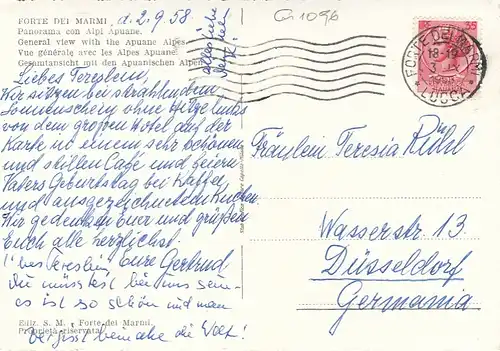 FORTE DEI MARMI, d. 2.9.58.
Panorama con Alpi Apuane.
General view with the Apuane Alpes.
Vue générale avec les Alpes Apuane.
Gesamtansicht mit den Apuanischen Alpen
G 1096
alles liebe
FORTE DEI MARMI
18-19
LUCCA
35
Liebes Tereslein,
Wir sitzen bei strahlendem
Sonnenschein ohne Hitze links
von dem großen Hotel auf der
Karte in einem sehr schönen
und stillen Café und feiern
Vaters Geburtstag bei Kaffee
und ausgezeichnetem Kuchen.
Wir gedenken Euer und grüßen
Euch alle herzlichst.
Eure Gertrud
L'bes Tereslein,
Du müsstest bei uns sein -
es ist so schön und man
vergisst beinahe die Welt!
Fräulein Teresia Rühl
Wasserstr. 13
Düsseldorf
Germania
Ediz. S. M. - Forte dei Marmi.
Proprietà riservata